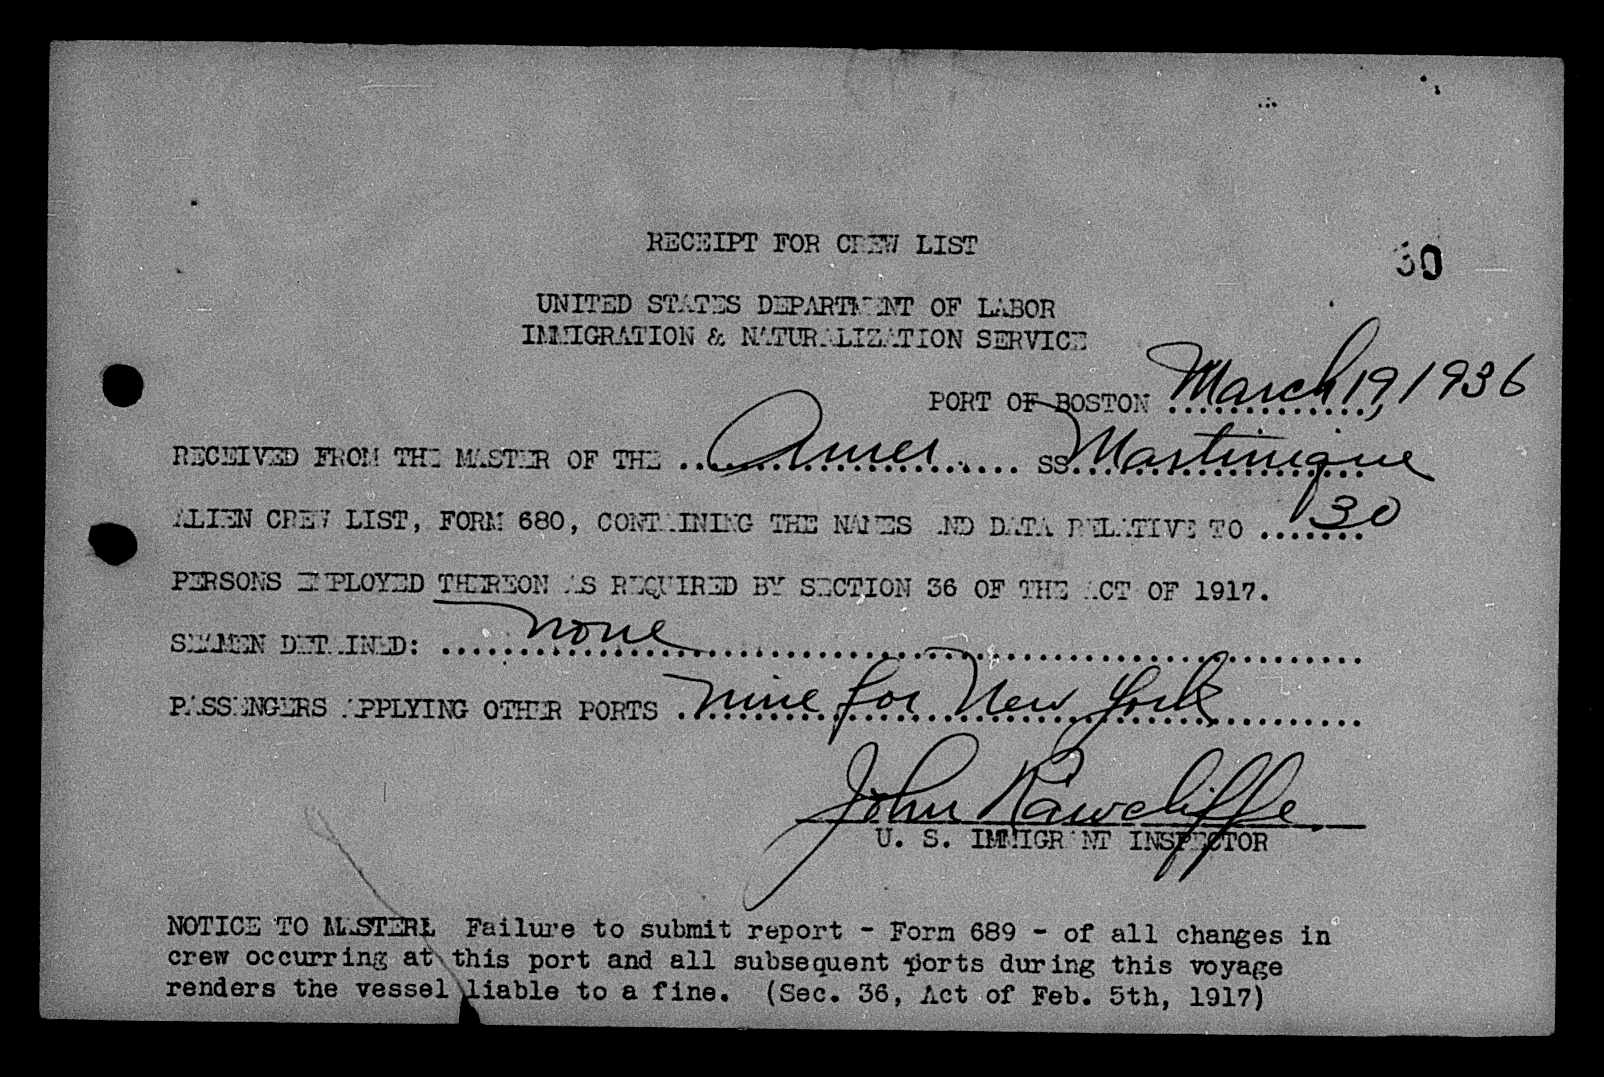 RECEIPT FOR CREW LIST
30
UNITED STATES DEPARTMENT OF LABOR
IMMIGRATION & NATURALIZATION SERVICE
PORT OF BOSTON March 19, 1936
RECEIVED FROM THE MASTER OF THE Amer SS Martinique
ALIEN CREW LIST, FORM 680, CONTAINING THE NAMES AND DATA RELATIVE TO 30
PERSONS EMPLOYED THEREON AS REQUIRED BY SECTION 36 OF THE ACT OF 1917.
SEAMEN DETAINED: none
PASSENGERS APPLYING OTHER PORTS nine for New York
John Rawcliffe
U. S. IMMIGRANT INSPECTOR
NOTICE TO MASTER: Failure to submit report - Form 689 - of all changes in
crew occurring at this port and all subsequent ports during this voyage
renders the vessel liable to a fine. (Sec. 36, Act of Feb. 5th, 1917)